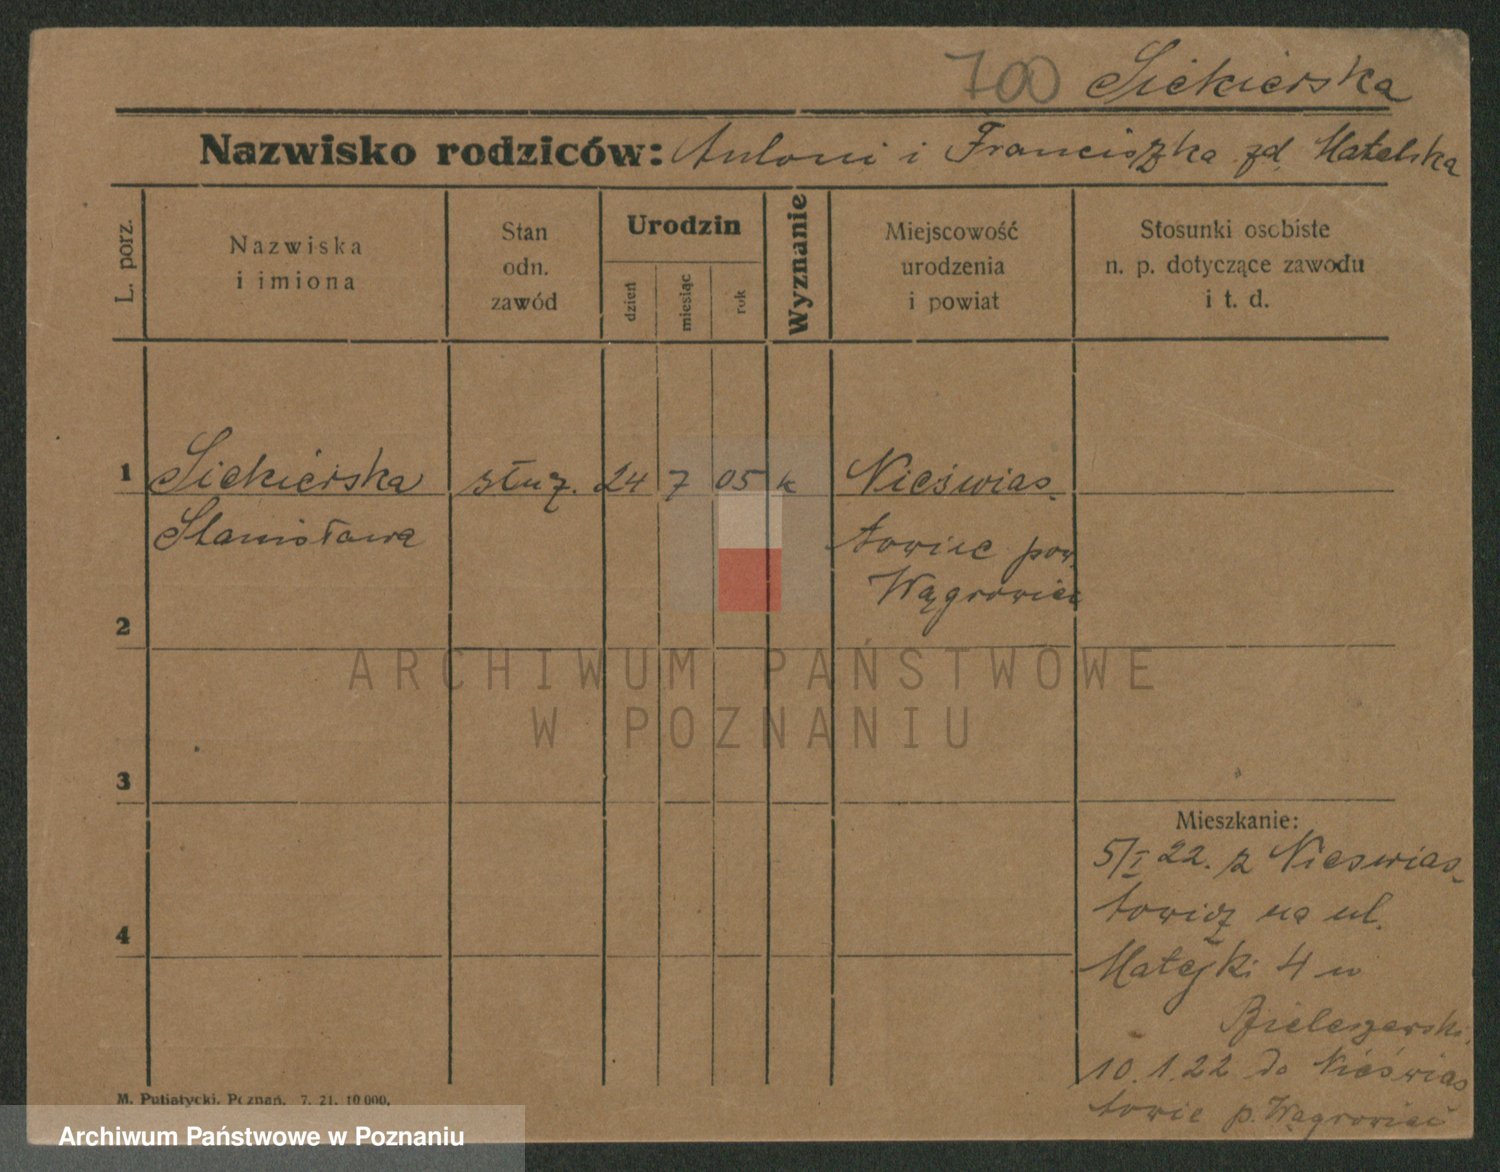 700 Siekierska
Nazwisko rodziców: Antoni i Franciszka zd. Matelska
L. porz.
Nazwiska
i imiona
Stan
odn.
zawód
Urodzin
dzień
miesiąc
rok
Wyznanie
Miejscowość
urodzenia
i powiat
Stosunki osobiste
n. p. dotyczące zawodu
i t. d.
1 Siekierska służ. 24 7 05 k Nieświas-
Stanisława towiec pow.
Wągrowiec
2
ARCHIWUM PAŃSTWOWE
W POZNANIU
3
Mieszkanie:
5/I 22. z Nieswias-
towicz na ul.
4
Matejki 4 u
10.1.22 do Nieświas
towic p. Wągrowiec
M. Putiatycki, Poznań. 7. 21. 10 000.
Archiwum Państwowe w Poznaniu